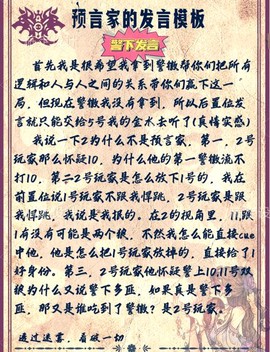 预言家的发言模板
警下发言
首先我是很希望我拿到警徽带你们把所有
逻辑和人与人之间的关系带你们赢下这一
局,但现在警徽我没有拿到,所以后置位发
言就只能交给5号我的金水去听了(真情实感)
我说一下2为什么不是预言家,第一,2号
玩家那么怀疑10,为什么他的第一警徽流不
打10,第二2号玩家是怎么放下1号的,我在
前置位说1号玩家不跟我悍跳,2号玩家是跟
我悍跳,我说是我抿的,在2的视角里,11,跟
1有没有可能是两个狼,不然我怎么能直接cue
中他,他是怎么把1号玩家放掉的,直接给了1
好身份。第三,2号玩家他怀疑警上10,11号双
狼为什么又说警下多匪,如果真是警下多
匪,那又是谁吃到了警徽?是2号玩家。
透过迷雾,看破一切